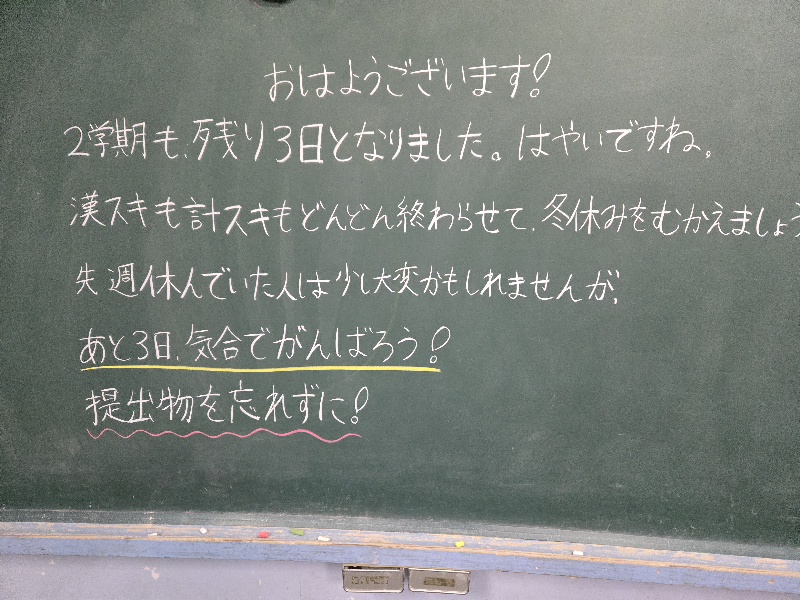 おはようございます!
2学期も、残り3日となりました。はやいですね。
漢スキも計スキもどんどん終わらせて、冬休みをむかえましょう
先週休んでいた人は少し大変かもしれませんが、
あと3日、気合でがんばろう!
提出物を忘れずに!